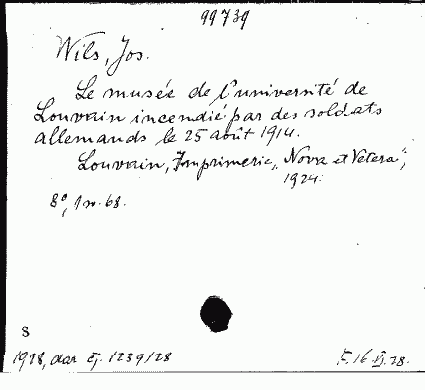 99739
Wils, Jos.
Le musée de l'université de
Louvain incendié par des soldats
allemands le 25 août 1914.
Louvain, Imprimerie „Nova et Vetera",
1924.
8°, 68.
S
1928, 1239/28
F. 16 28.